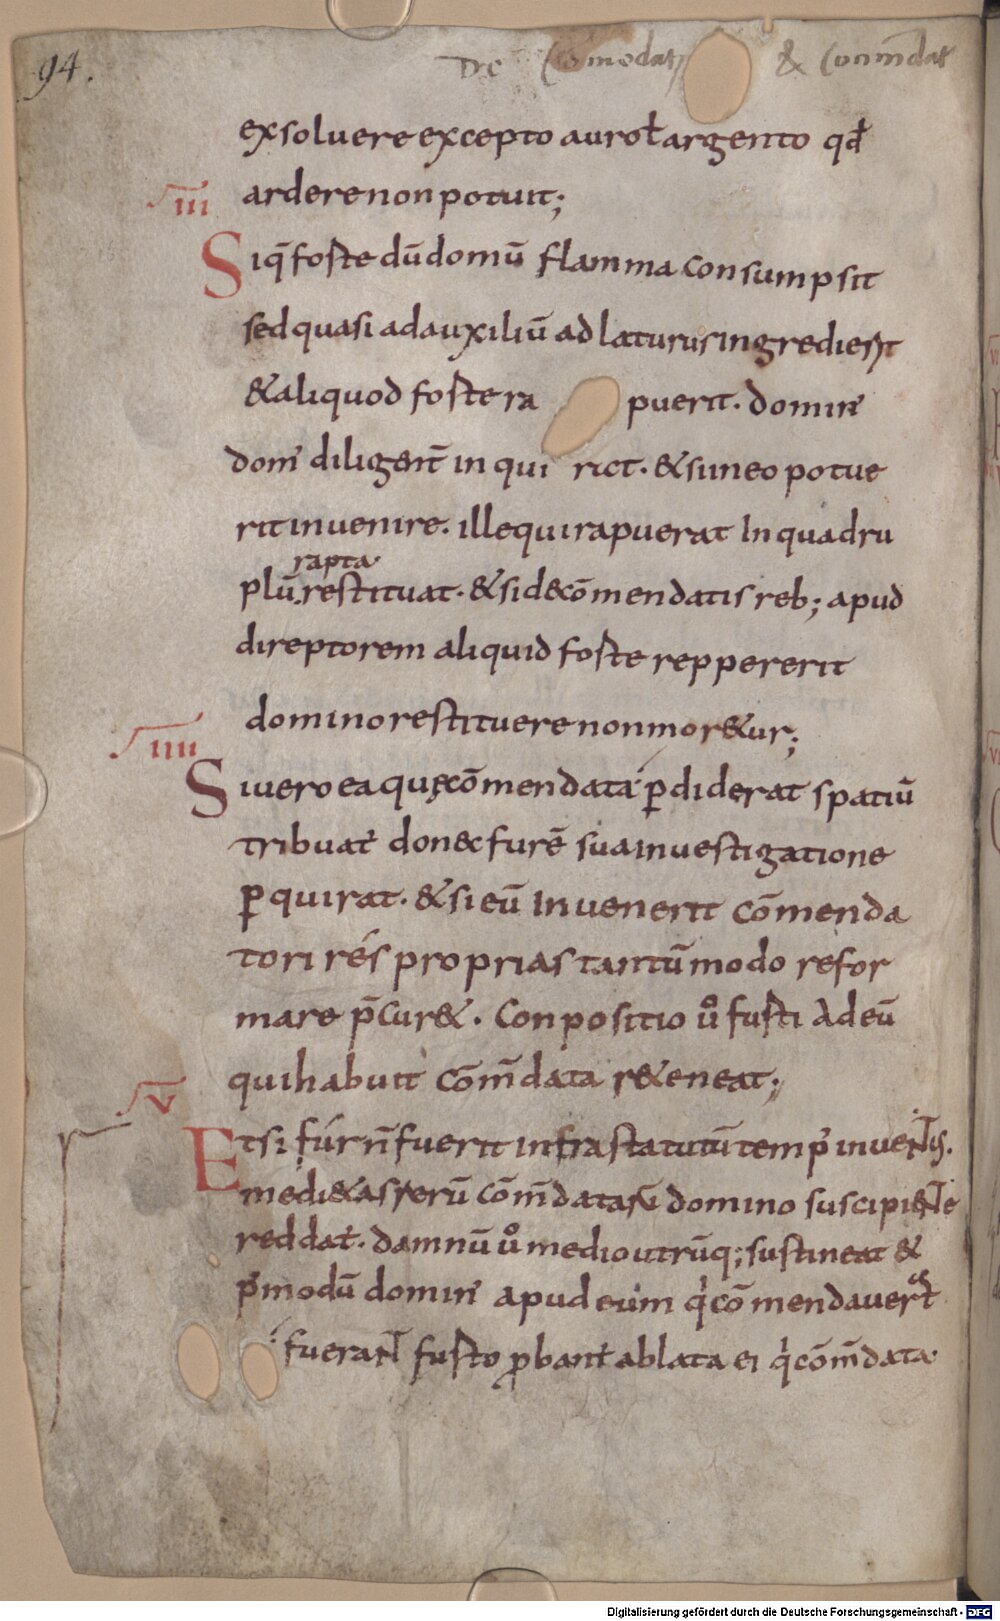 94.
De Com̄odat & Com̄dat
exsoluere excepto auro ł argento qđ
arderenonpotuit;
III
Siq̄ foste dū domū flamma consumpsit
sed quasi ad auxiliū ad laturus ingredient̄
& aliquod foste ra puerit. domin'
dom' diligent̄ in qui rict. & siineo potue
rit inuenire. ille qui rapuerat In quadru
rapta
plū restituat. & si de cōmendatis reb; apud
direptorem aliquid foste reppererit
domino restituere non mor&ur;
IIII
Si uero ea quę cōmendata ꝑdiderat spatiū
tribuat donec furē sua inuestigatione
ꝑquirat. & si eū Inuenerit cōmenda
tori rés proprias tantūmodo refor
mare p̄cur&. Conpositio ůo fusti ad eū
qui habuit com̄data r&eneat;
V
Et si fúr n̄ fuerit infra statutū temp' inuentus.
medi&as rerū com̄datarū domino suscipiente
reddat. damnū ůo medio utrūq; sustineat &
p'modū domin' apud eum qi cōmendauerat
fuerant fusto ꝓbant ablata ei qi com̄data
Digitalisierung gefördert durch die Deutsche Forschungsgemeinschaft - DFG